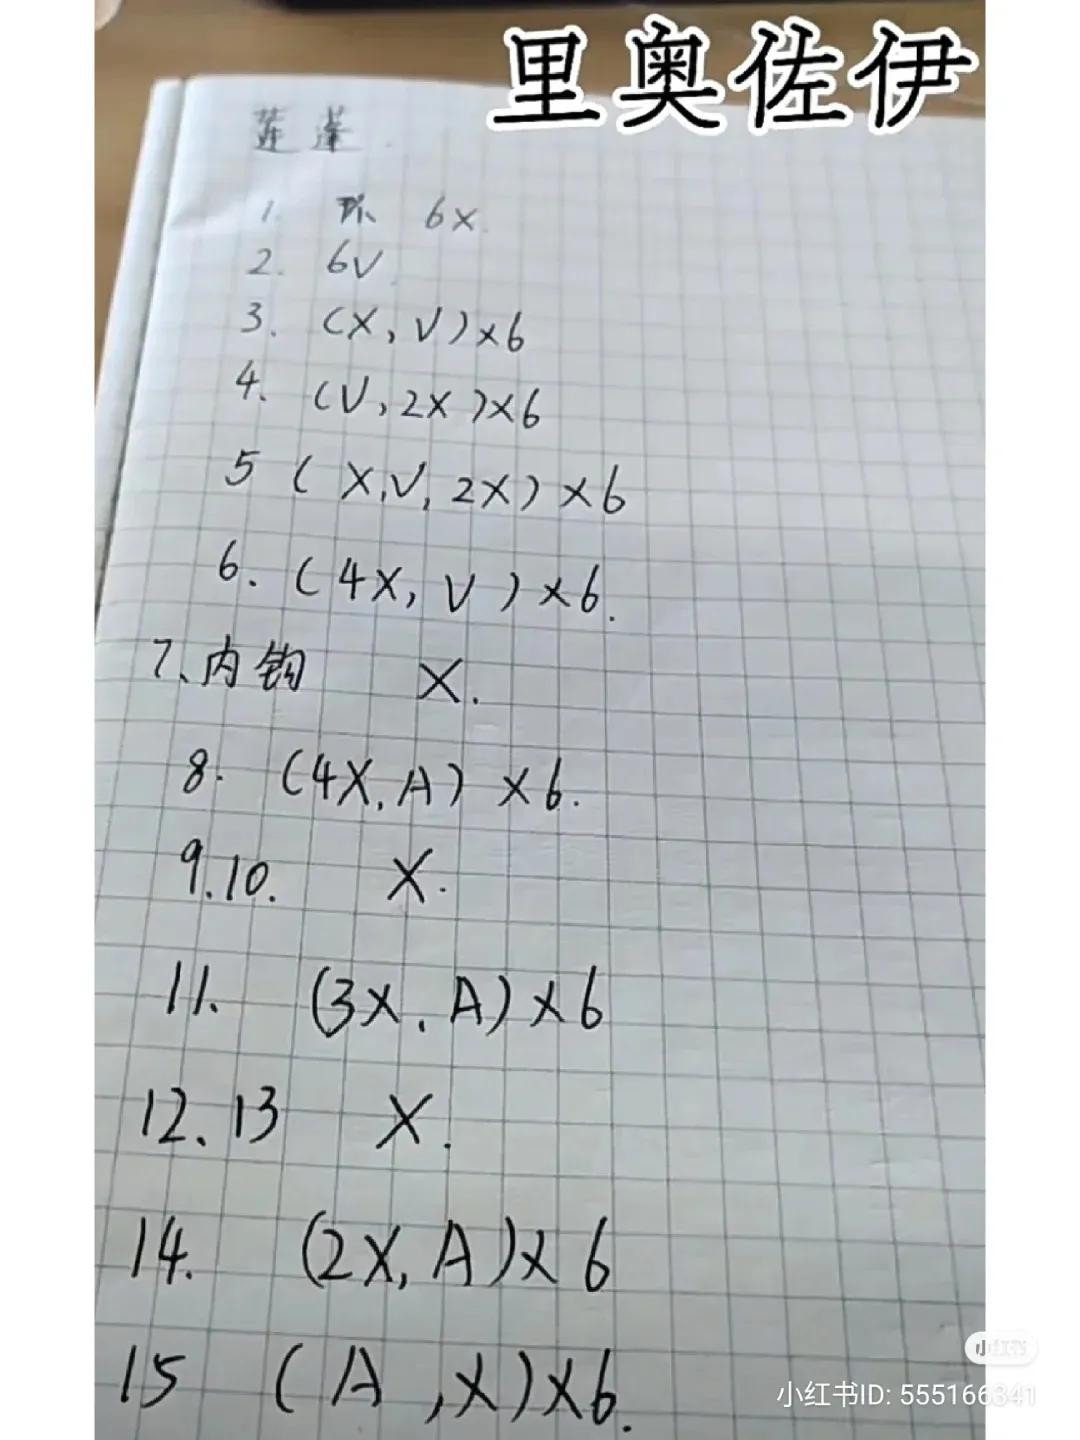 里奥佐伊
莲蓬.
1. 环 6X.
2. 6V
3. (X, V)×6
4. (V, 2X)×6
5 (X, V, 2X)×6
6. (4X, V)×6.
7、内钩 X.
8. (4X, A)×6.
9.10. X.
11. (3X, A)×6
12、13 X.
14. (2X, A)×6
15 (A, X)×6.
小红书
小红书ID: 555166341